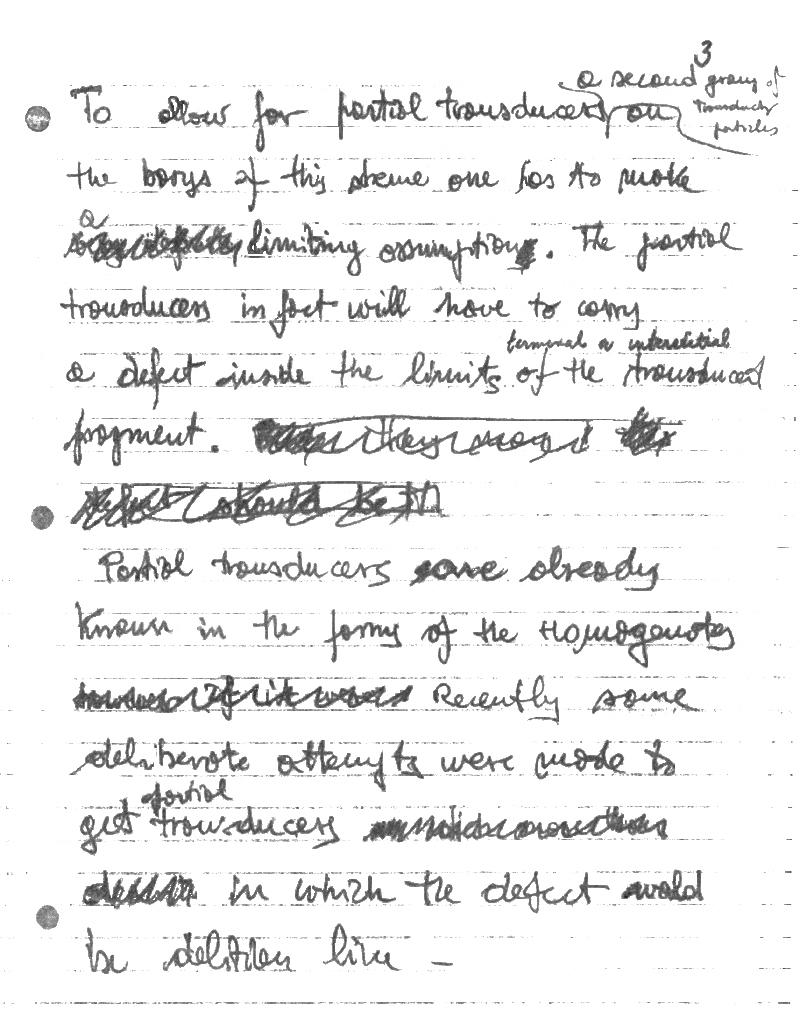 3
a second group of
transducing
particles
To allow for partial transducers on
the basys of this sheme one has to make
a
limiting assumption. The partial
transducers in fact will have to carry
terminal or interstitial
a defect inside the limits of the transduced
fragment. they may
should be in
Partial transducers are already
Known in the forms of the Homogenotes
Recently some
deliberate attempts were made to
partial
get transducers
in which the defect would
be deletion like –